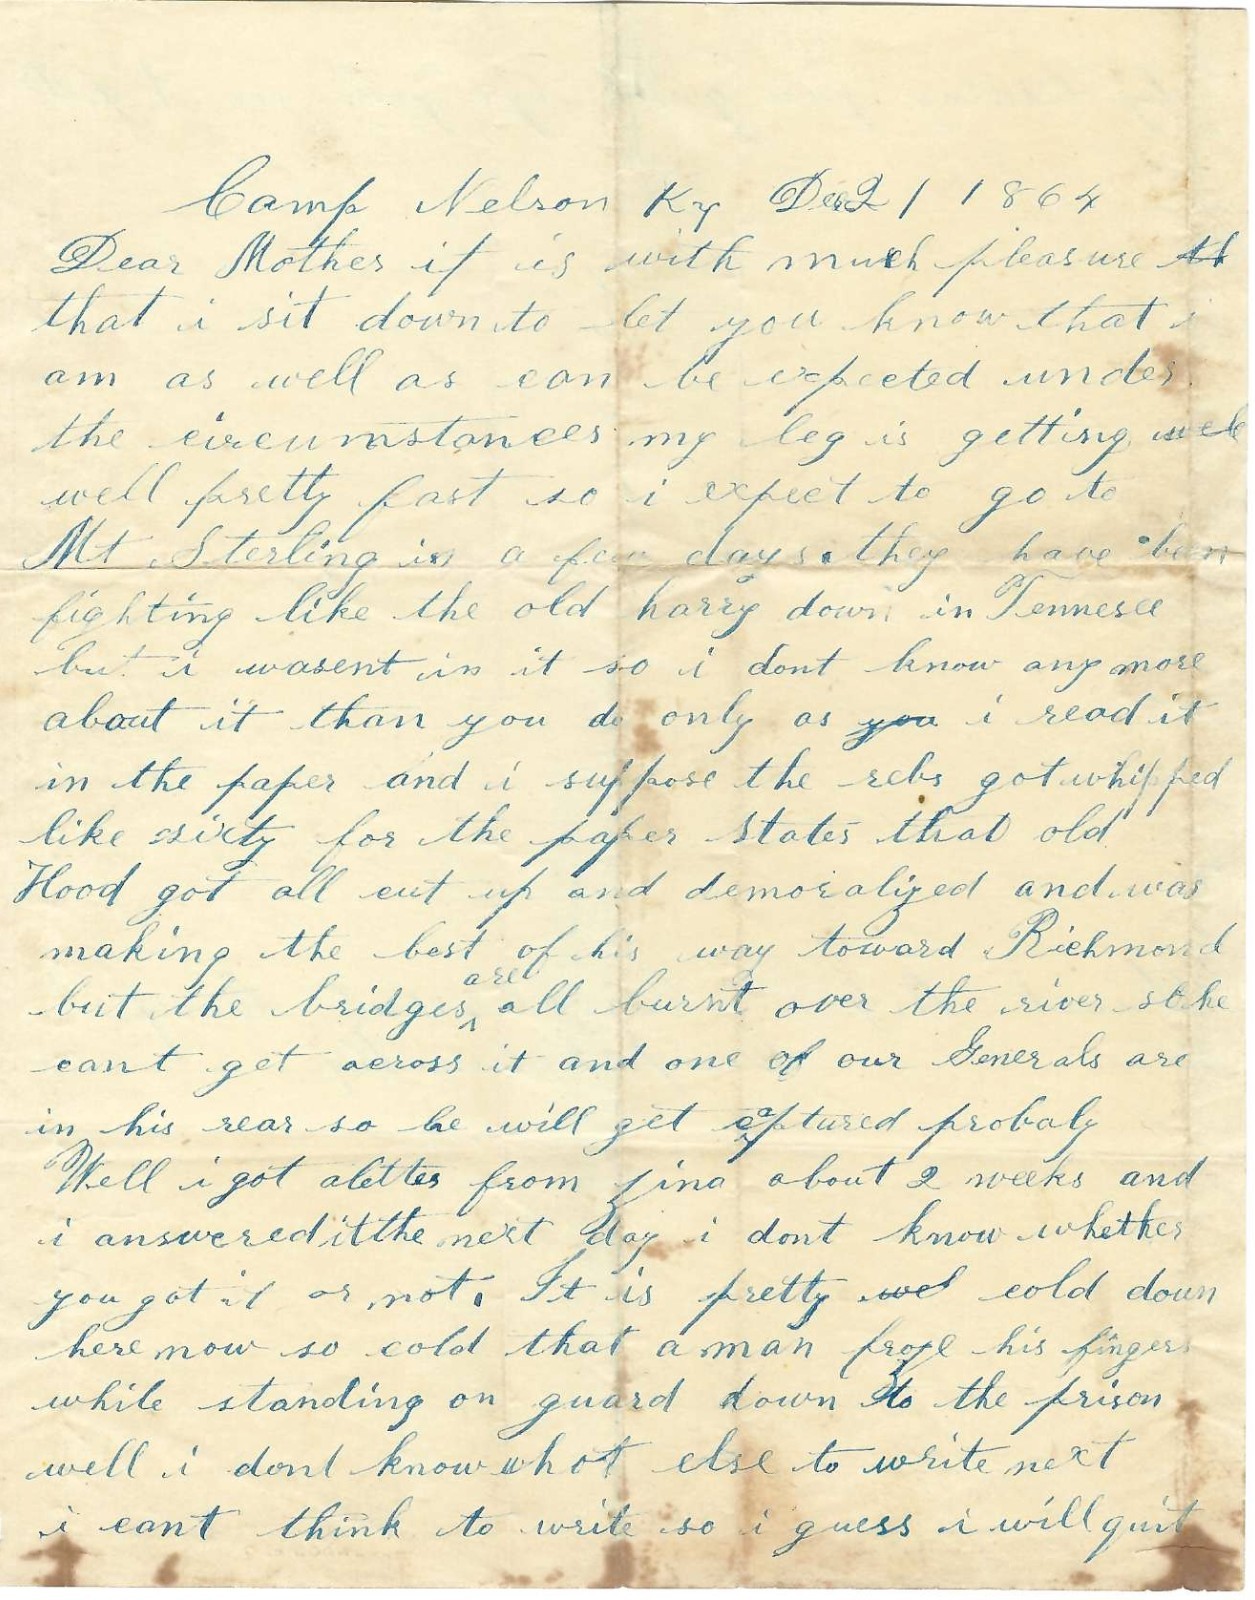 Camp Nelson Ky Dec 21 1864
Dear Mother it is with much pleasure th
that i sit down to let you know that i
am as well as can be expected under
the circumstances my leg is getting well
well pretty fast so i expect to go to
Mt Sterling in a few days. they have been
fighting like the old harry down in Tennesee
but i wasent in it so i dont know any more
about it than you do only as you i read it
in the paper and i suppose the rebs got whipped
like sixty for the paper states that old
Hood got all cut up and demoralized and was
making the best of his way toward Richmond
but the bridges are all burnt over the river so he
cant get across it and one of our Generals are
in his rear so he will get captured probaly
Well i got a letter from zina about 2 weeks and
i answered it the next day i dont know whether
you got it or not. It is pretty wel cold down
here now so cold that a man froze his fingers
while standing on guard down to the prison
well i dont know what else to write next
i cant think to write so i guess i will quit